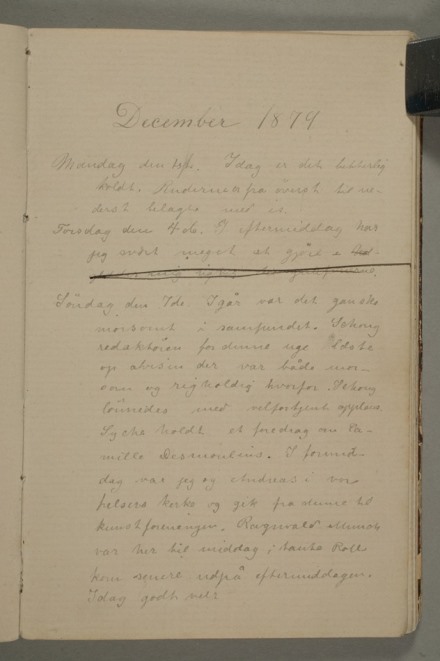 December 1879
Mandag den 1ste. Idag er det bitterlig
koldt. Ruderne ere fra øverst til ne-
derst belagte med is.
Torsdag den 4de. I eftermiddag har
jeg svært meget at gjøre
Søndag den 7de. Igår var det ganske
morsomt i samfundet. Schong
redaktøren for denne uge læste
op avisen der var både mor-
som og righoldig hvorfor Schong
lønnedes med velfortjent applaus.
Sycke holdt et foredrag om Ca-
mille Desmoulins. I formid-
dag var jeg og Andreas i vor
frelsers kirke og gik fra denne til
kunstforeningen. Ragnvald Munch
var her til middag; tante Roll
kom senere udpå eftermiddagen.
Idag godt veir